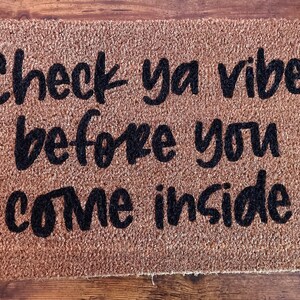 Check ya vibe
before you
come inside